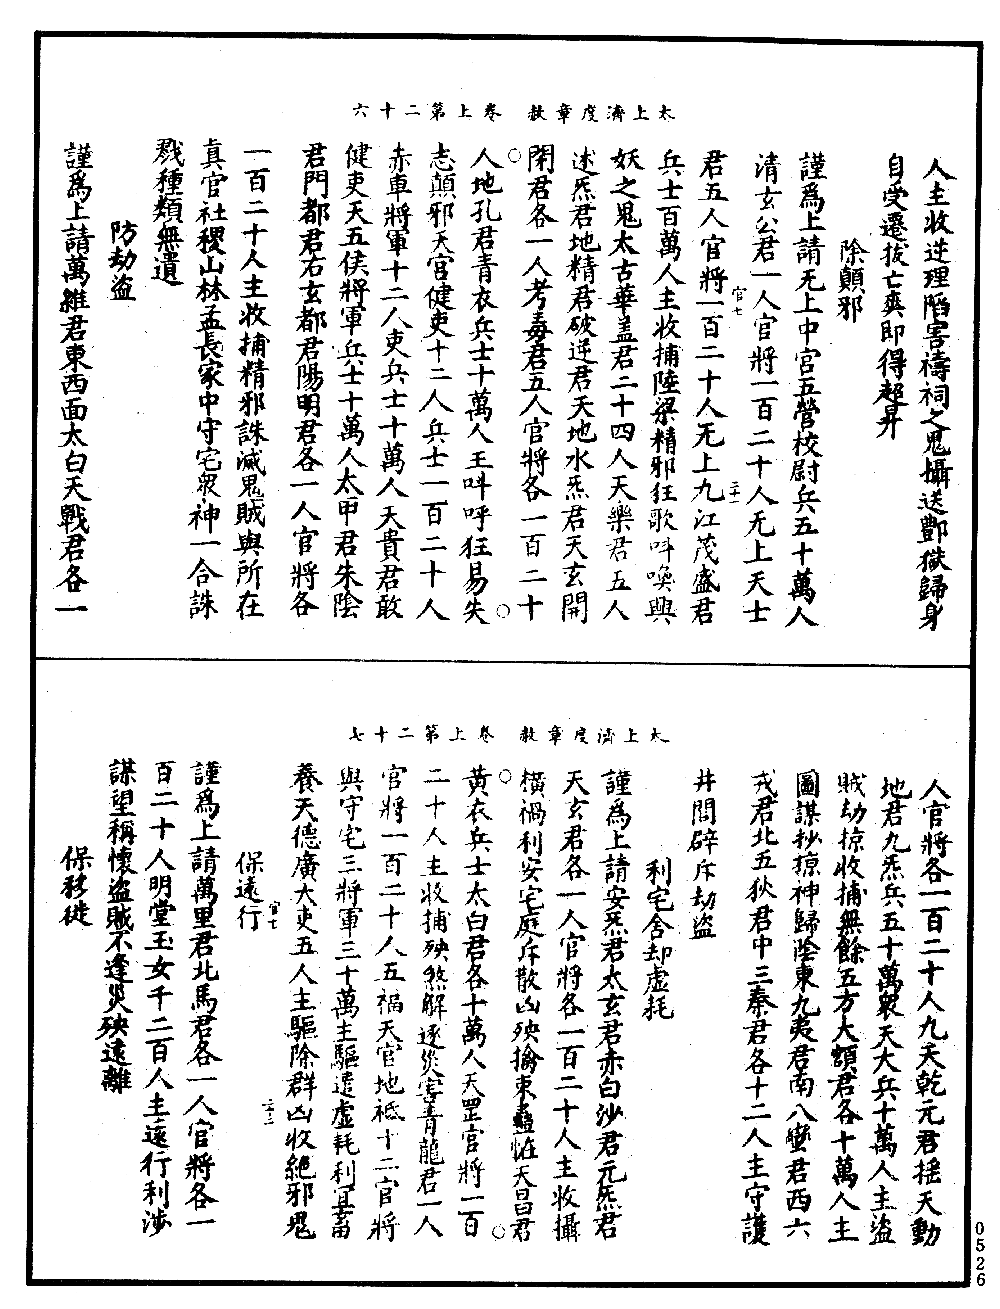 太上濟度章赦　卷上第二十六
人主收逆理陷害禱祠之鬼攝送酆獄歸身
自受遷拔亡爽即得超昇
除顛邪
謹爲上請无上中宮五營校尉兵五十萬人
清玄公君一人官將一百二十人无上天士
君五人官將一百二十人无上九江茂盛君
兵士百萬人主收捕陸梁精邪狂歌呌喚興
妖之鬼太古華盖君二十四人天樂君五人
述炁君地精君破逆君天地水炁君天玄開
閉君各一人考毒君五人官將各一百二十
人地孔君青衣兵士十萬人王呌呼狂易失
志顛邪天官健吏十二人兵士一百二十人
赤車將軍十二人吏兵士十萬人天貴君敢
健吏天五侯將軍兵士十萬人太甲君朱陰
君門都君右玄都君陽明君各一人官將各
一百二十人主收捕精邪誅滅鬼賊與所在
真官社稷山林孟長家中守宅衆神一合誅
戮種類無遺
防劫盜
謹爲上請萬維君東西面太白天戰君各一
官七
二十一
太上濟度章赦　卷上第二十七
人官將各一百二十人九天乾元君揺天動
地君九炁兵五十萬衆天大兵十萬人主盜
賊劫掠收捕無餘五方大額君各十萬人主
圖謀抄掠神歸陰東九夷君南八蠻君西六
戎君北五狄君中三秦君各十二人主守護
井閭辟斥劫盜
利宅舍却虛耗
謹爲上請安炁君太玄君赤白沙君元炁君
天玄君各一人官將各一百二十人主收攝
橫禍利安宅庭斥散凶殃擒束蠱恠天昌君
黃衣兵士太白君各十萬人天罡官將一百
二十人主收捕殃煞解逐災害青龍君一人
官將一百二十人五福天官地祗十二官將
與守宅三將軍三十萬主驅遣虛耗利宜畜
養天德廣大吏五人主驅除群凶收絕邪鬼
保遠行
謹爲上請萬里君北馬君各一人官將各一
百二十人明堂玉女千二百人主遠行利涉
謀望稱懷盜賊不逢災殃遠離
保移徙
官七
二十二
0526